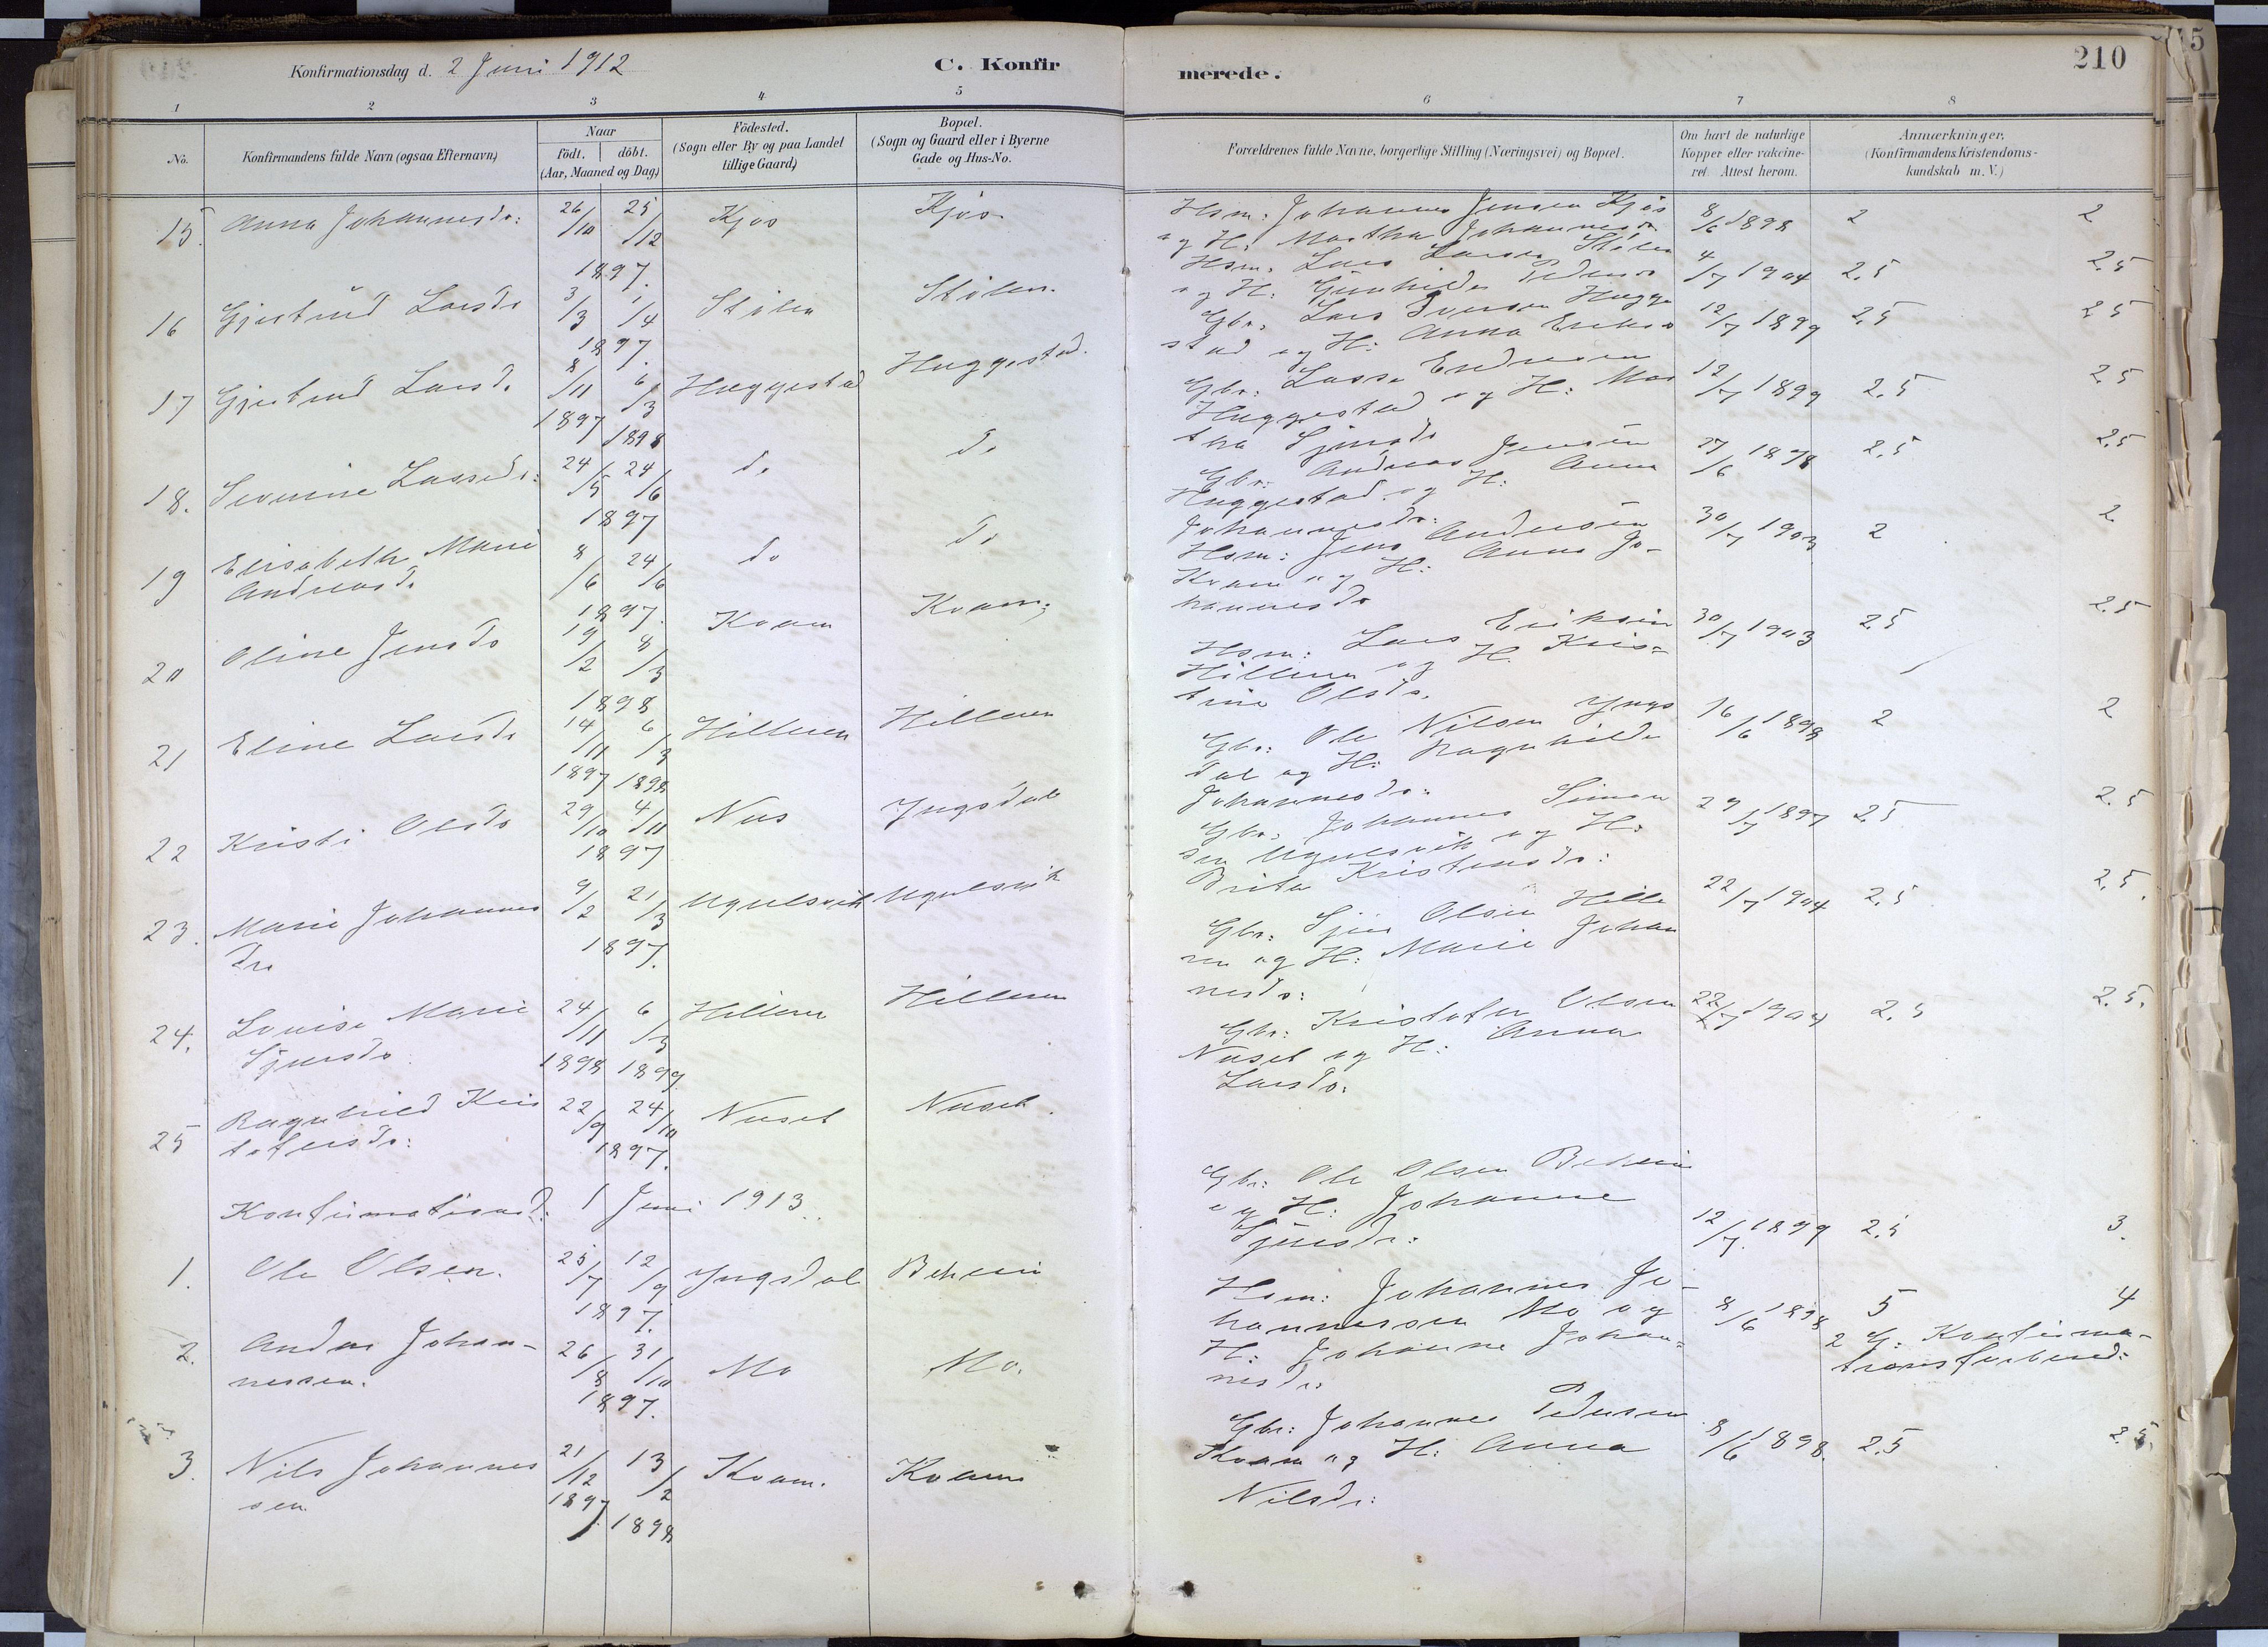 210
Konfirmationsdag d. 2 Juni 1912
C. Konfirmerede.
1 2 3 4 5 6 7 8
No.
Konfirmandens fulde Navn (ogsaa Efternavn)
Naar
födt. döbt.
(Aar, Maaned og Dag)
Födested.
(Sogn eller By og paa Landet
tillige Gaard)
Bopæl.
(Sogn og Gaard eller i Byerne
Gade og Hus-No.
Forældrenes fulde Navne, borgerlige Stilling (Næringsvei) og Bopæl.
Om havt de naturlige
Kopper eller vakcine-
ret. Attest herom.
Anmærkninger.
(Konfirmandens Kristendoms-
kundskab m. V.)
15. Anna Johannesdr: 26/10 25/12 1897. Kjos Kjos.
Hsm: Johannes Jensen Kjos
og H: Martha Johannesdr
8/6 1898 2 2
16 Gjertrud Larsdr 3/3 1/4 1897. Stölen Stölen.
Hsm: Lars Larsen Stölen
og H: Gunhilde Pedersdr
4/7 1904 2.5 2.5
17 Gjertrud Larsd. 8/11 1897 6/3 1898 Huggestad Huggestad.
Gbr: Lars Iversen Hugge
stad og H: Anna Eriksdr
12/7 1899 2.5 2.5
18. Severine Lassedr: 24/5 24/6 1897 do do
Gbr: Lasse Endresen
Huggestad og H: Mar
tha Sjursdr
12/7 1899 2.5 2.5
19 Elisabeth Marie
Andreasd. 8/6 24/6 1897. do do
Gbr: Andreas Jensen
Huggestad og H: Anna
Johannesdr:
27/6 1898 2.5 2.5
20 Oline Jensdr 19/2 8/3 1898 Kvam Kvam
Hsm: Jens Andersen
Kvam og H: Anna Jo-
hannesdr
30/7 1903 2 2
21 Eline Larsdr 14/11 1897 6/3 1898 Hilleren Hilleren
Hsm: Lars Eriksen
Hilleren og H. Kris-
tine Olsdr.
30/7 1903 2.5 2.5
22 Kristi Olsdr 29/10 4/11 1897 Nus Yngsdal
Gbr: Ole Nilsen Yngs
dal og H: Ragnhilde
Johannesdr:
16/6 1898 2 2
23. Marie Johannes
dr 9/2 21/3 1897. Ugulsvik Ugulsvik
Gbr: Johannes Simon
sen Ugulsvik og H:
Brita Kristensdr:
29/7 1897 2.5 2.5
24. Lovise Marie
Sjursdr 24/11 1898 6/3 1899 Hilleren Hilleren
Gbr: Sjur Olsen Hille
ren og H: Marie Johan
nesdr:
22/7 1904 2.5 2.5.
25 Ragnhild Kris
tofersdr: 22/9 24/10 1897. Nuset Nuset.
Gbr: Kristofer Olsen
Nuset og H: Anna
Larsdr:
22/7 1904 2.5 2.5.
Konfirmationsd: 1 Juni 1913.
1. Ole Olsen. 25/7 12/9 1897. Yngsdal
Gbr: Ole Olsen
og H: Johanne
Sjursdr:
12/7 1899 2.5 3.
2. Anders Johan-
nessen. 26/8 31/10 1897. Mo Mo.
Hsm: Johannes Jo-
hannessen Mo og
H: Johanne Johan-
nesdr
8/6 1898 5 4
2 G. Konfirma-
tionsforbered:
3. Nils Johannes
sen 21/12 1897 13/2 1898 Kvam. Kvam
Gbr: Johannes Pedersen
Kvam og H: Anna
Nilsdr:
8/6 1898. 2.5 2.5.